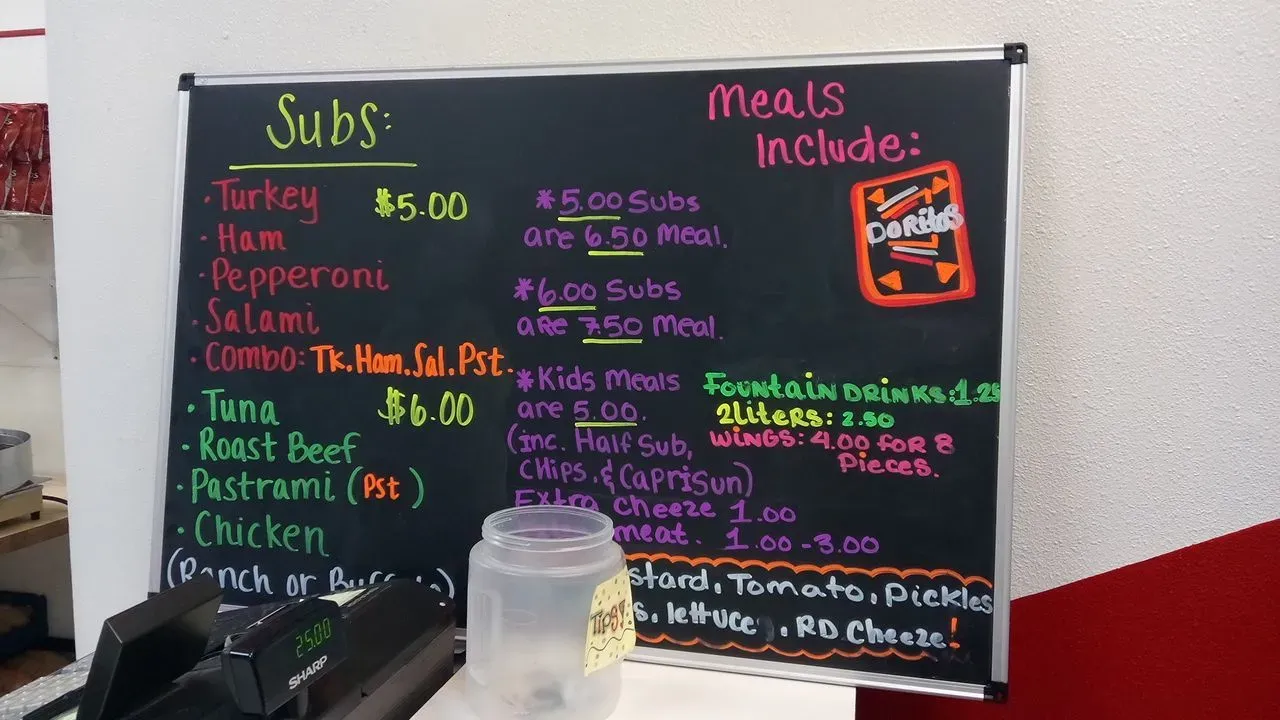 Subs:
• Turkey $5.00
• Ham
• Pepperoni
• Salami
• Combo: Tk. Ham. Sal. Pst.
• Tuna $6.00
• Roast Beef
• Pastrami (Pst)
• Chicken
(Ranch or Buffalo)
* 5.00 Subs
are 6.50 Meal.
* 6.00 Subs
are 7.50 Meal.
* Kids Meals
are 5.00.
(inc. Half Sub,
Chips, & CapriSun)
Extra Cheeze 1.00
meat. 1.00 - 3.00
Meals
Include:
DORitos
Fountain DRINKS: 1.25
2liters: 2.50
WINGS: 4.00 for 8
Pieces.
stard, Tomato, Pickles
s, lettuce, RD Cheeze!
Tips!
25.00
SHARP